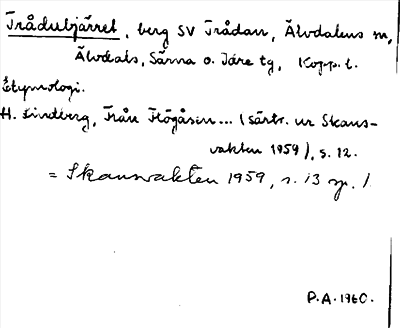 Trådubjärret, berg SV Trådan, Älvdalens sn,
Älvdals, Särna o. Idre tg, Kopp. l.
Etymologi.
H. Lindberg, Från Högåsen... (särtr. ur Skans-
vakten 1959), s. 12.
= Skansvakten 1959, s. 13 sp. 1
P.A. 1960.